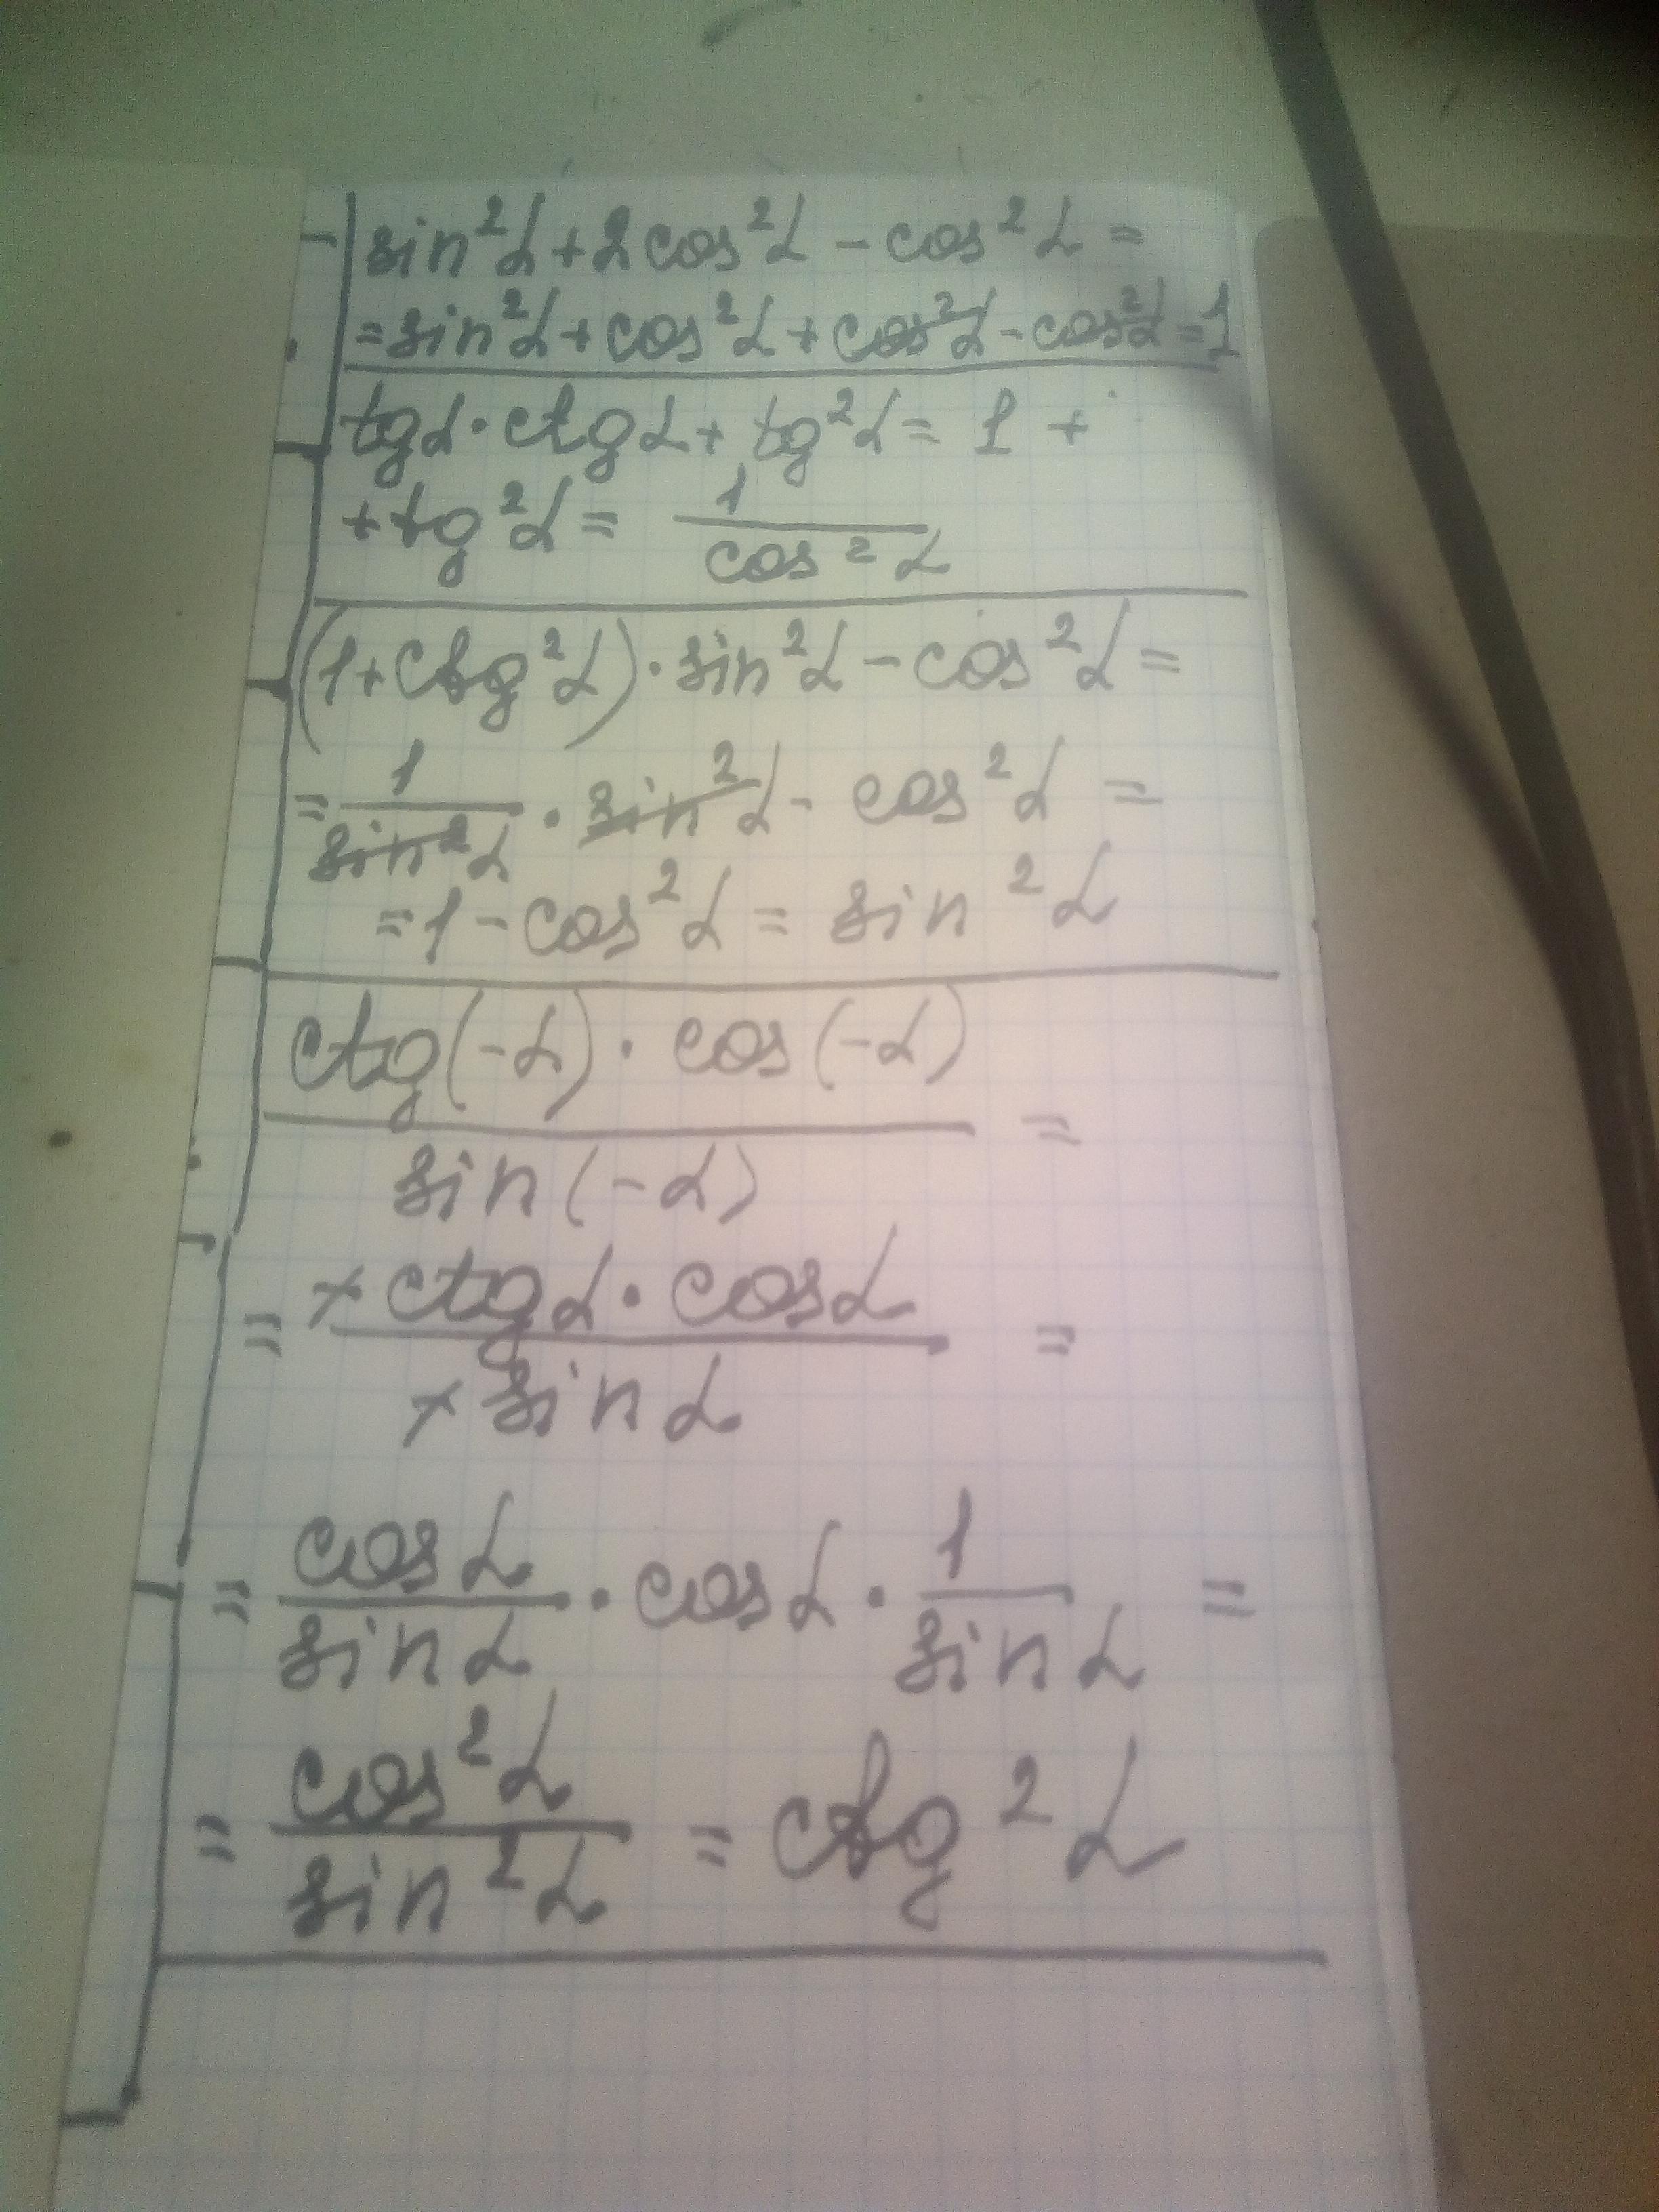 sin²α + 2cos²α - cos²α =
= sin²α + cos²α + cos²α - cos²α = 1
tgα · ctgα + tg²α = 1 +
+ tg²α = 1/cos²α
(1 + ctg²α) · sin²α - cos²α =
= 1/sin²α · sin²α - cos²α =
= 1 - cos²α = sin²α
ctg(-α) · cos(-α)
=
sin(-α)
= -ctgα · cosα / -sinα =
= cosα/sinα · cosα · 1/sinα =
= cos²α/sin²α = ctg²α